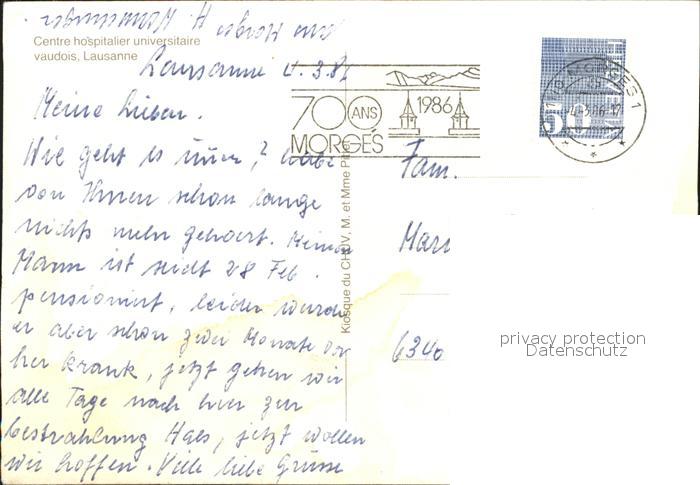 Centre hospitalier universitaire
vaudois, Lausanne
Lausanne 4.3.86
Meine Lieben.
Wie geht es immer, habe
von Ihnen schon lange
nichts mehr gehoert. Meinen
Mann ist seidt 28 Feb.
pensioniert, leider wurde
er aber schon zwei Monate vor
her krank, jetzt gehen wir
alle Tage nach hier zur
bestrahlung Hals, jetzt wollen
wir hoffen. Viele liebe Grüsse
von
700 ANS
MORGES
1986
MORGES 1
HELVETIA
50
Kiosque du CHUV, M. et Mme
Fam.
6340
privacy protection
Datenschutz